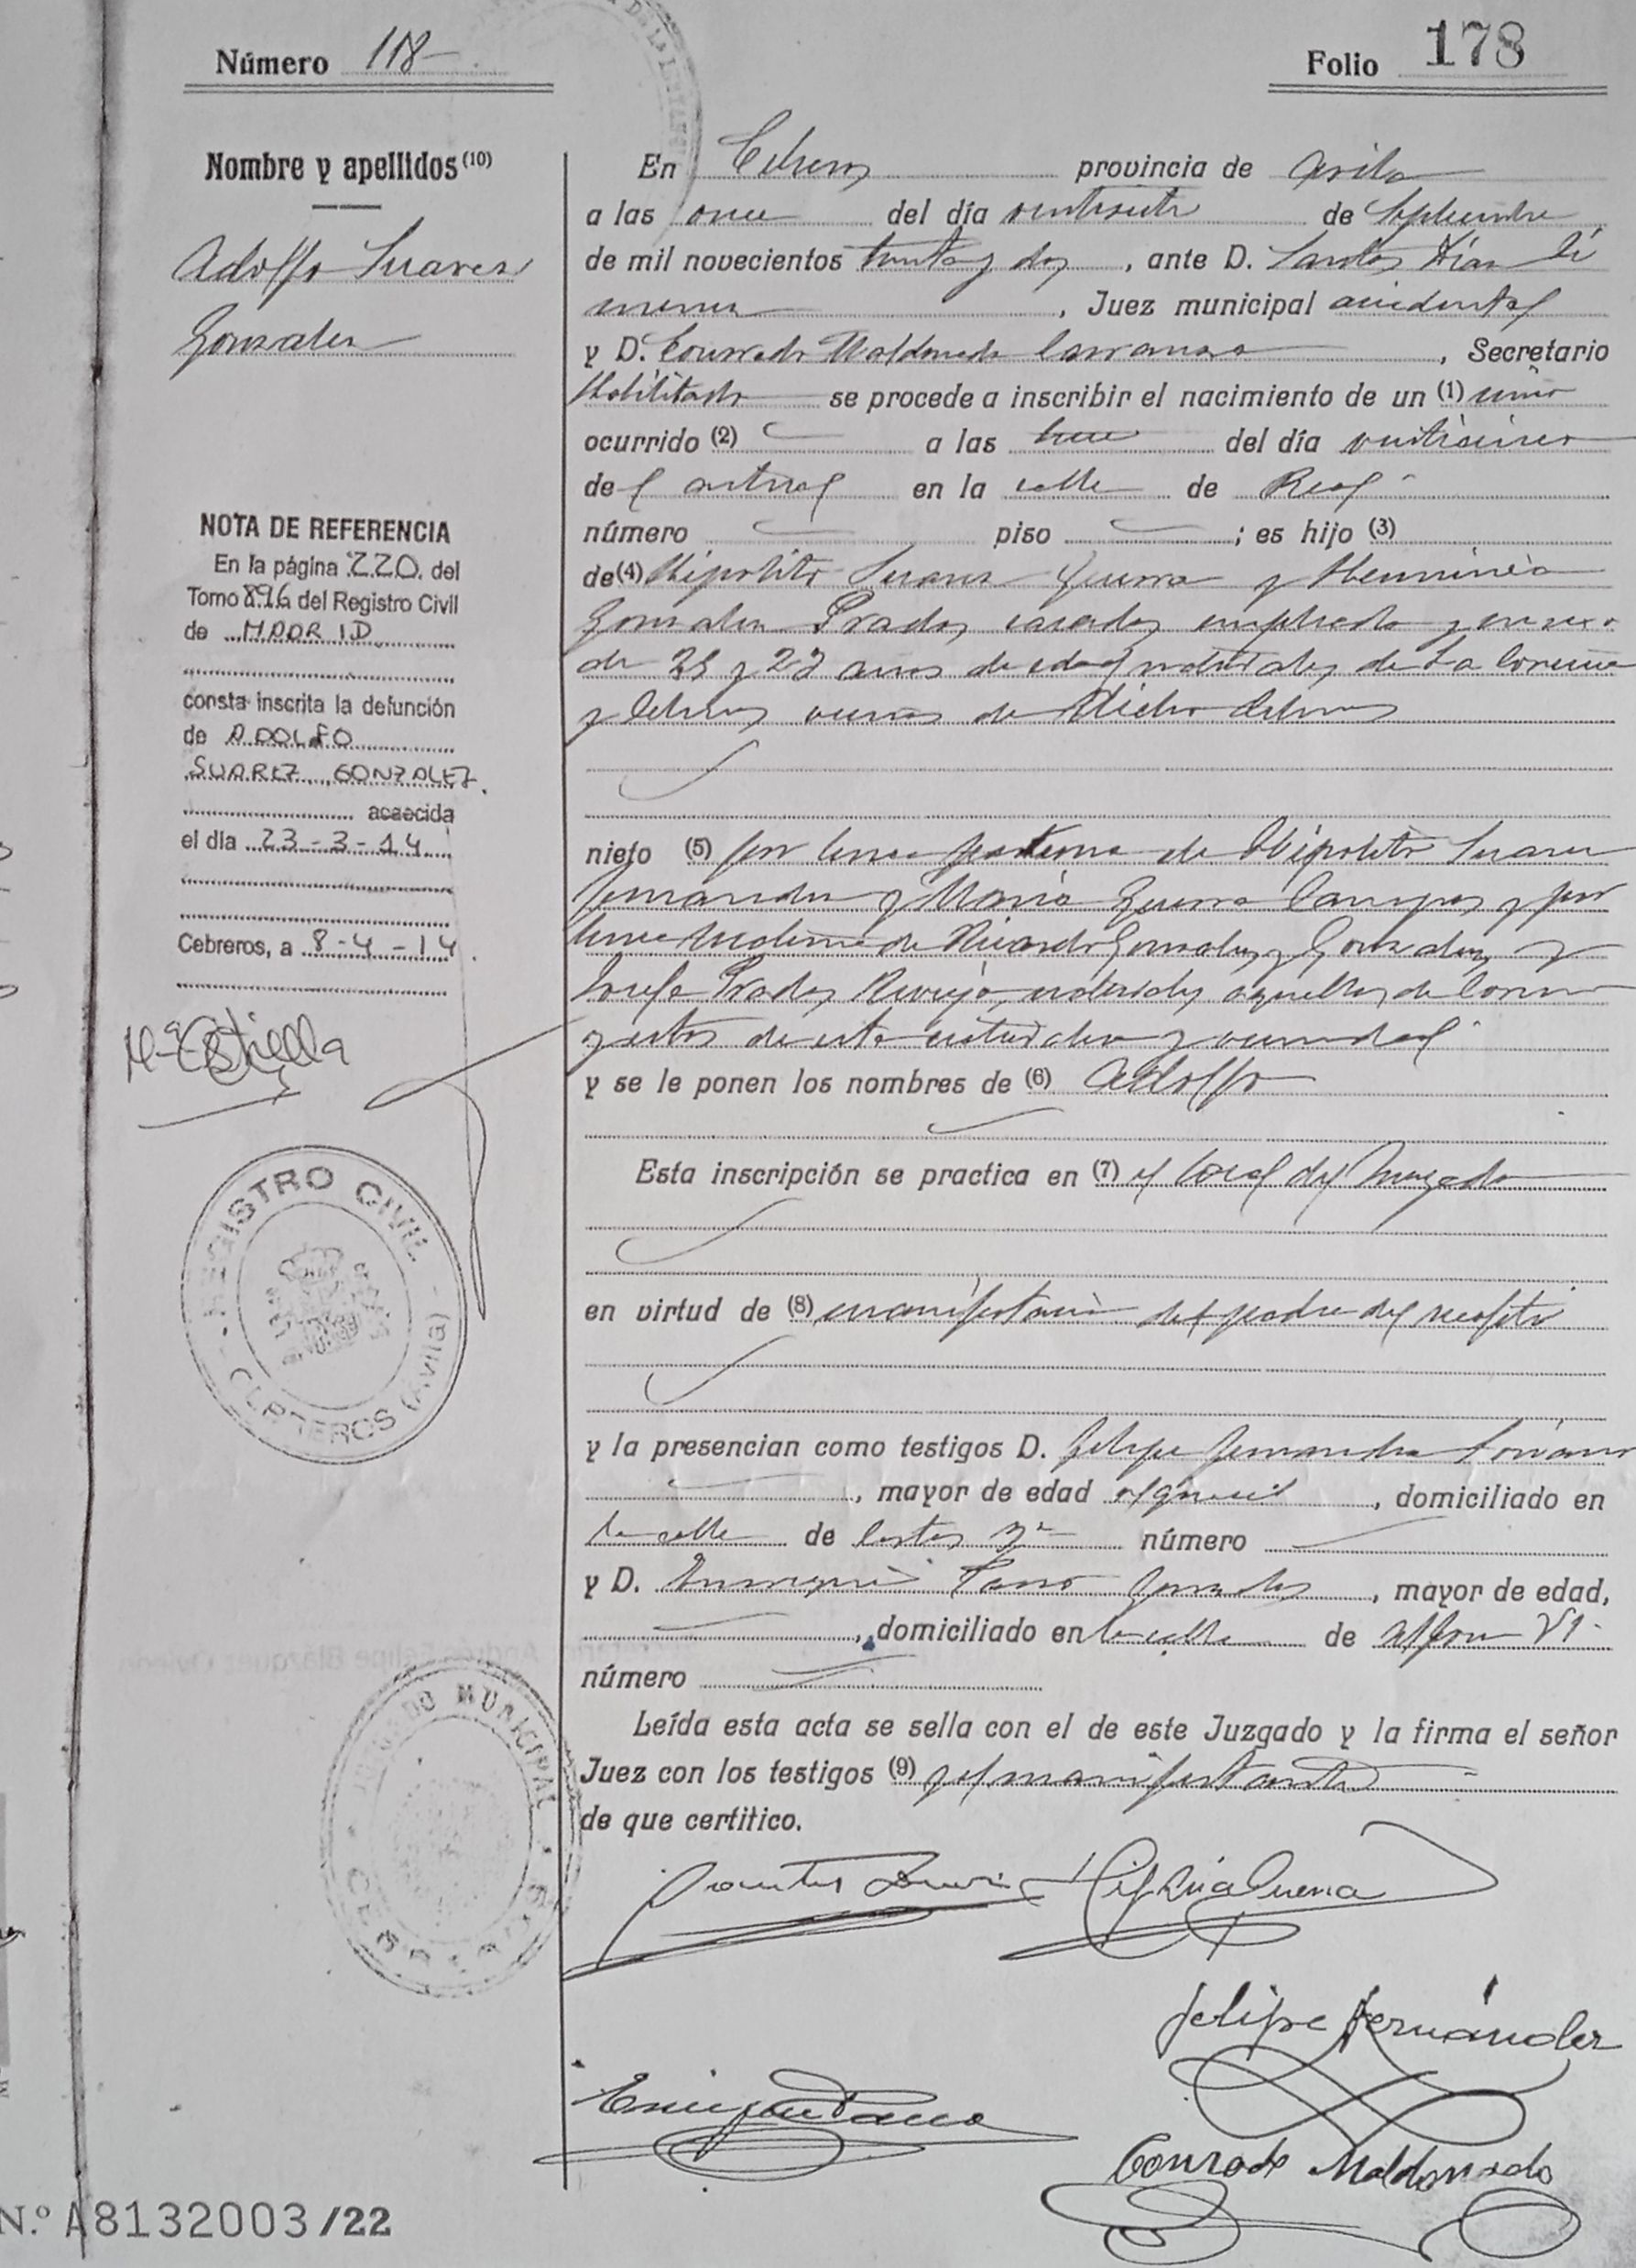 Número 118
Folio 178
Nombre y apellidos (10)
Adolfo Suarez
Gonzalez
NOTA DE REFERENCIA
En la página 220 del
Tomo 896 del Registro Civil
de MADRID
consta inscrita la defunción
de ADOLFO
SUAREZ GONZALEZ
acaecida
el dia 23-3-14
Cebreros, a 8-4-14
Mª Estrella
REGISTRO CIVIL
CEBREROS (Avila)
JUZGADO MUNICIPAL
En Cebreros provincia de Avila
a las once del día de Septiembre
de mil novecientos treinta y dos, ante D. Santos Díaz Ji
menez, Juez municipal accidental
y D. Conrado Maldonado Carranza, Secretario
Habilitado se procede a inscribir el nacimiento de un (1) niño
ocurrido (2) a las trece del día veinticinco
del actual en la calle de Real
número piso ; es hijo (3)
de (4) Hipolito Suarez Guerra y Herminia
Gonzalez Prados casados empleado y
de 25 y 22 años de edad naturales de La Coruña
y Cebreros vecinos de dicho Cebreros
nieto (5) por linea paterna de Hipolito Suarez
Fernandez y Maria Guerra Campos y por
linea materna de Ricardo Gonzalez y Gonzalez y
Josefa Prados naturales aquellos de Coruña
y estos de esta naturaleza y vecindad
y se le ponen los nombres de (6) Adolfo
Esta inscripción se practica en (7) el local del Juzgado
en virtud de (8) manifestación del padre del
y la presencian como testigos D. Felipe Fernandez Soriano
, mayor de edad alguacil, domiciliado en
la calle de número
y D. Enrique, mayor de edad,
, domiciliado en la calle de Alfonso VI
número
Leída esta acta se sella con el de este Juzgado y la firma el señor
Juez con los testigos (9) y el manifestante
de que certitico.
Santos Hip Guerra
Felipe Fernández
Enrique
Conrado Maldonado
N.º A8132003/22